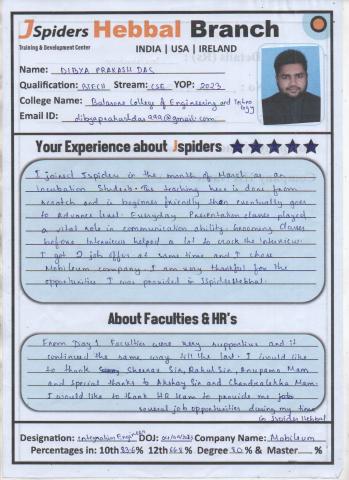 JSpiders Hebbal Branch
Training & Development Center
INDIA | USA | IRELAND
Name: DIBYA PRAKASH DAS
Qualification: BTECH Stream: CSE YOP: 2023
College Name: Balasore College of Engineering and Techno
logy
Email ID: dibyaprakashdas999@gmail.com
Your Experience about Jspiders
I joined Jspiders in the month of March as an
Incubation Student. The teaching here is done from
scratch and is beginner friendly then eventually goes
to advance level. Everyday Presentation classes played
a vital role in communication ability. Grooming classes
before Interviews helped a lot to crack the Interview.
I got 2 job offers at same time and I chose
Mobileum company. I am very thankful for the
opportunities I was provided in JSpidersHebbal.
About Faculties & HR's
From Day 1 Faculties were very supportive and it
continued the same way till the last. I would like
to thank Sheervas Sir, Rahul Sir, Anupama Mam
and special thanks to Akshay Sir and Chandralekha Mam.
I would like to thank HR team to provide me job
several job opportunities during my time
in Jspider Hebbal
Designation: Integration Engineer DOJ: Company Name: Mobileum
Percentages in: 10th % 12th % Degree % & Master ...... %